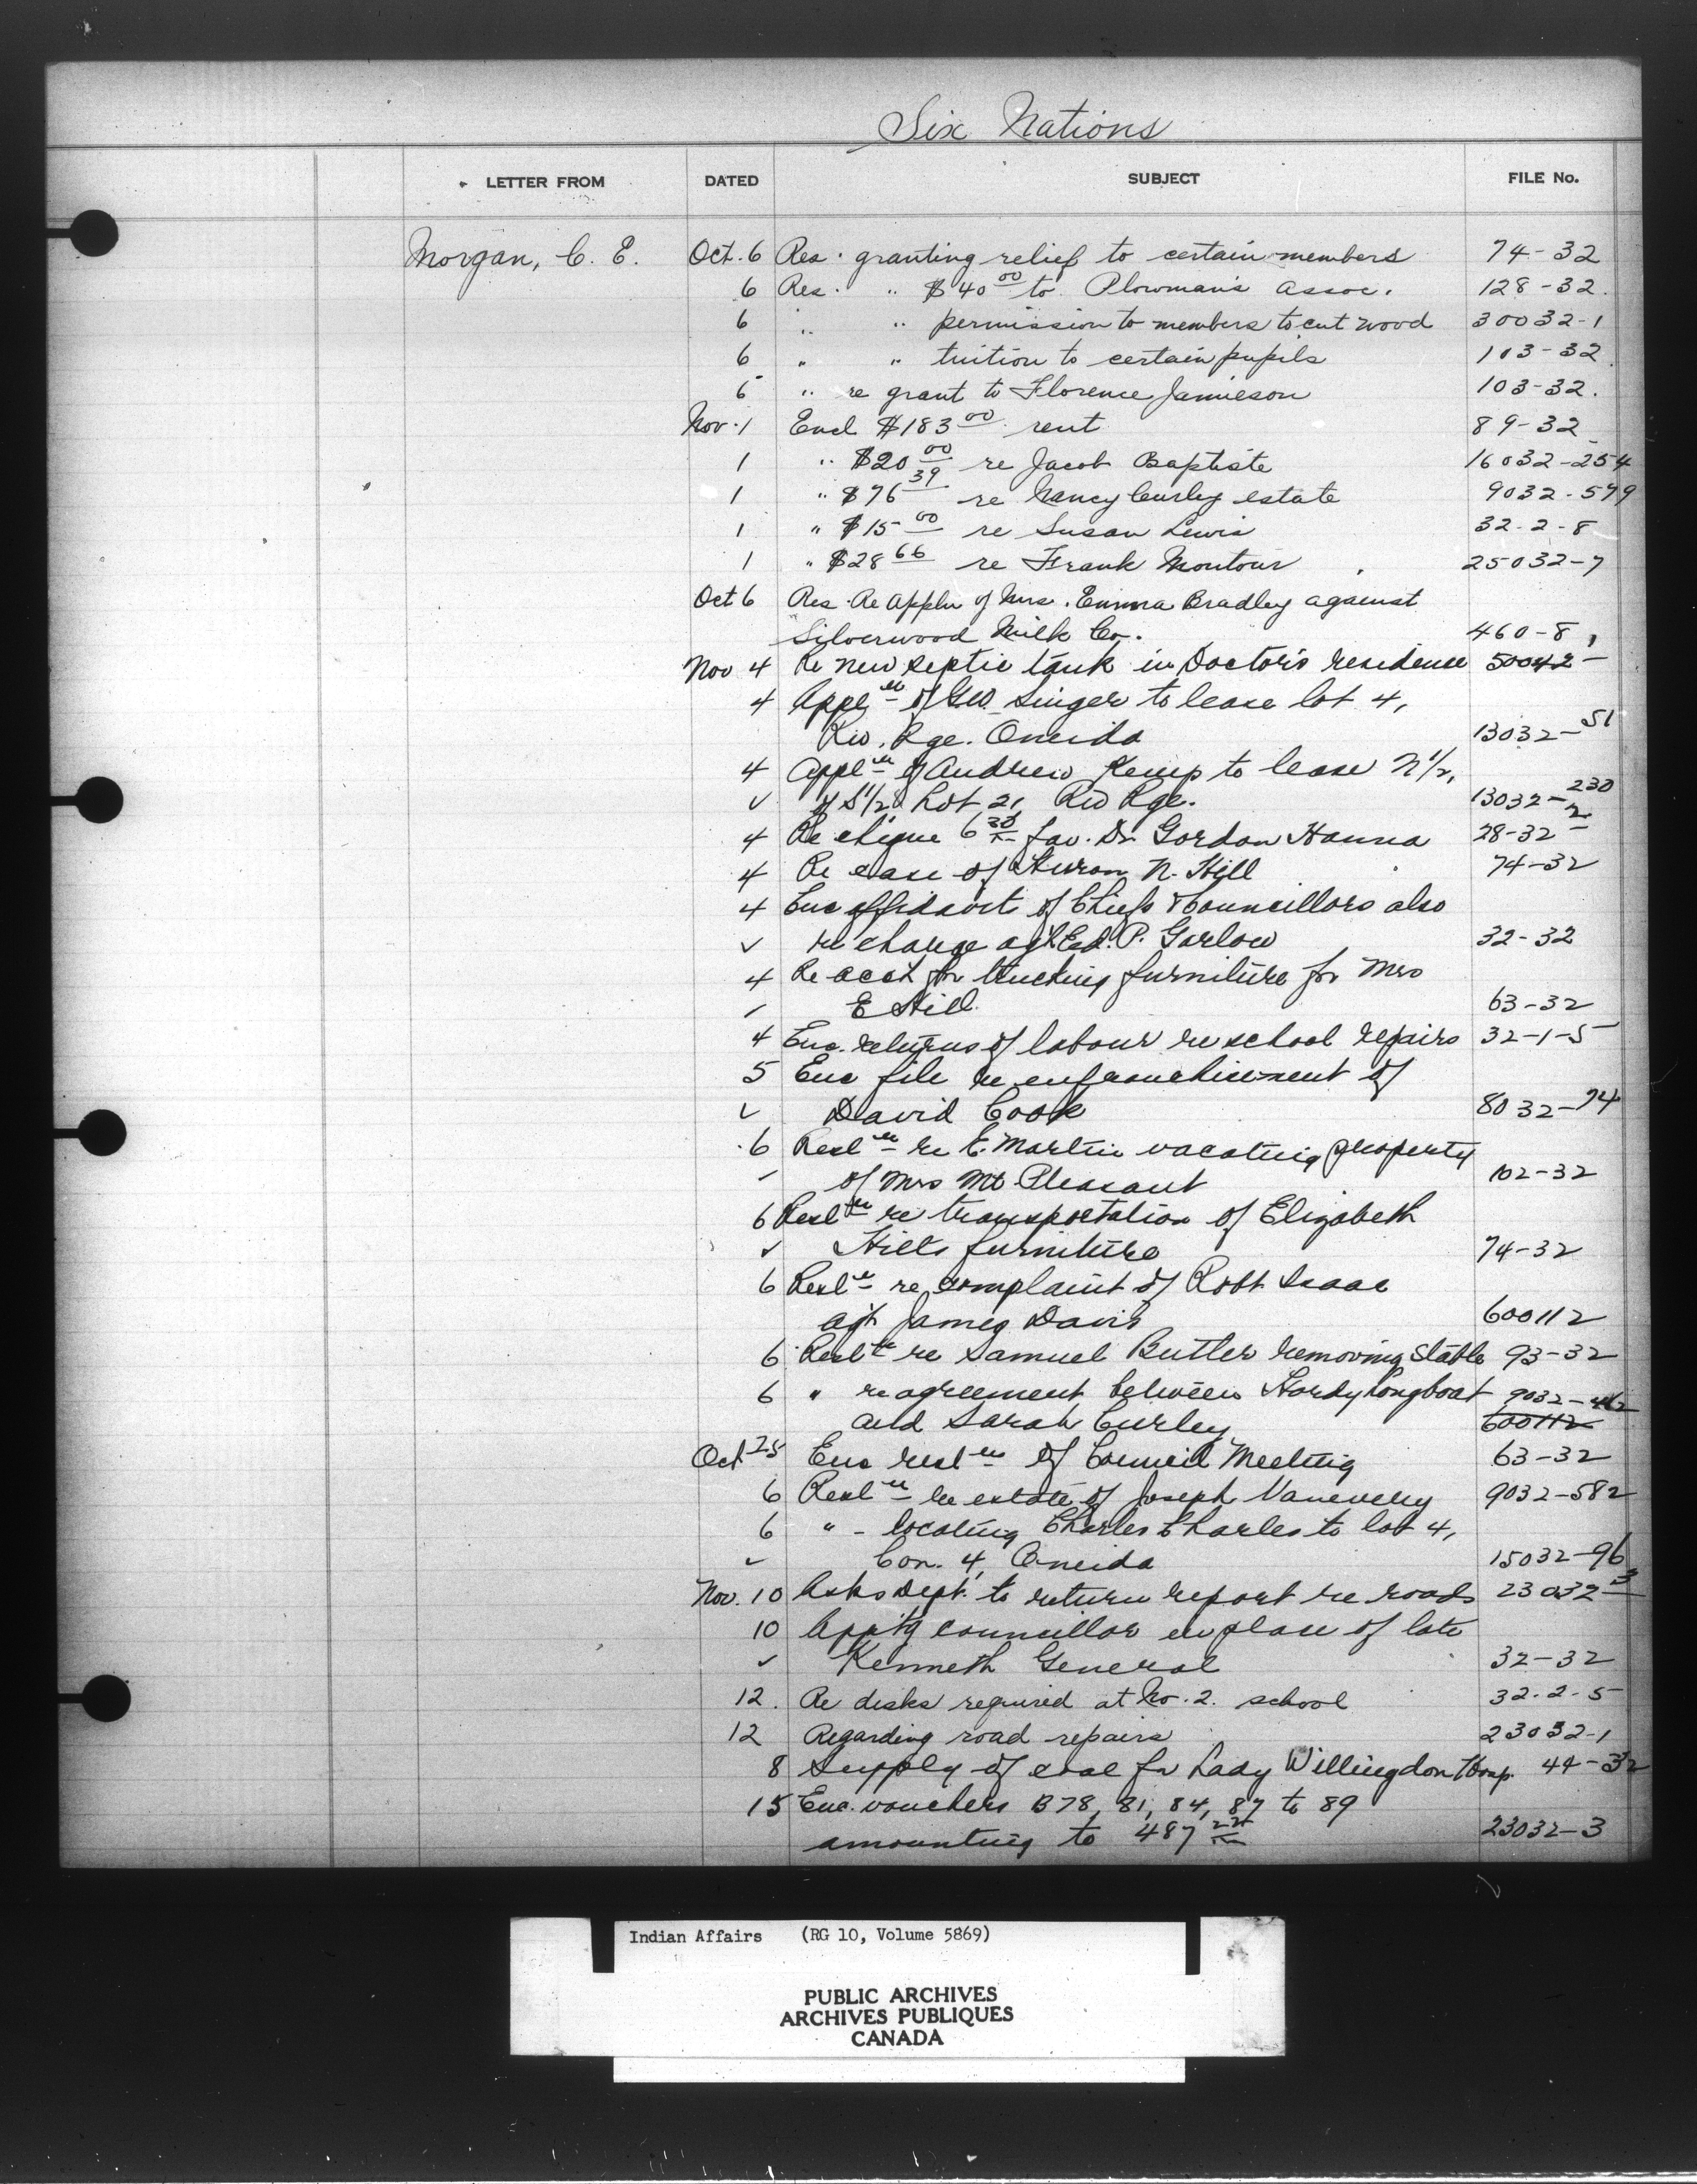 Six Nations
LETTER FROM DATED SUBJECT FILE No.
Morgan, C. E. Oct. 6 Res. granting relief to certain members 74-32
6 Res. " $40 00 to Plowman's Assoc. 128-32.
6 " " permission to members to cut wood 30032-1
6 " " tuition to certain pupils 103-32
6 " re grant to Florence Jamieson 103-32.
Nov. 1 Encl $183 00 rent 89-32
1 " $20 00 re Jacob Baptiste 16032-254
1 " $76 39 re Nancy Curley estate 9032-579
1 " $15 00 re Susan Lewis 32-2-8
1 " $28 66 re Frank Montour 25032-7
Oct 6 Res. Re Appln of Mrs. Emma Bradley against
Silverwood Milk Co. 460-8
Nov 4 Re new septic tank in Doctor's residence 50042-
4 Appl of G.W. Singer to lease lot 4,
Riv. Rge. Oneida 13032-51
4 Appl of Andrew Kemp to lease N 1/2,
✓ of S 1/2 Lot 21, Riv Rge. 13032-230
4 Re cheque 6 fav. Dr. Gordon Hanna 28-32-2
4 Re case of Hiram N. Hill 74-32
4 Enc affidavit of Chiefs & Councillors also
✓ re charge agt Ed. P. Garlow 32-32
4 Re acct for trucking furniture for Mrs
E Hill 63-32
4 Enc. returns of labour re school repairs 32-1-5
5 Enc file re enfranchisement of
✓ David Cook 8032-74
6 Resl re E. Martin vacating property
of Mrs Mt. Pleasant 102-32
6 Resl re transportation of Elizabeth
✓ Hill's furniture 74-32
6 Resl re complaint of Robt Isaac
agt James Davis 600112
6 Resl re Samuel Butler removing stable 93-32
6 " re agreement between Hardy Longboat 9032-462
and Sarah Curley 600112
Oct 25 Enc resl of Council Meeting 63-32
6 Resl re estate of Joseph Vanevery 9032-582
6 " - locating Charles Charles to lot 4,
✓ Con. 4, Oneida 15032-96
Nov. 10 Asks Dept. to return report re roads 23032-3
10 Appt'g councillor in place of late
✓ Kenneth General 32-32
12. Re desks required at No. 2. school 32-2-5
12 Regarding road repairs 23032-1
8 Supply of coal for Lady Willingdon Hosp. 44-32
15 Enc. vouchers B78, 81, 84, 87 to 89
amounting to 487 23032-3
Indian Affairs (RG 10, Volume 5869)
PUBLIC ARCHIVES
ARCHIVES PUBLIQUES
CANADA